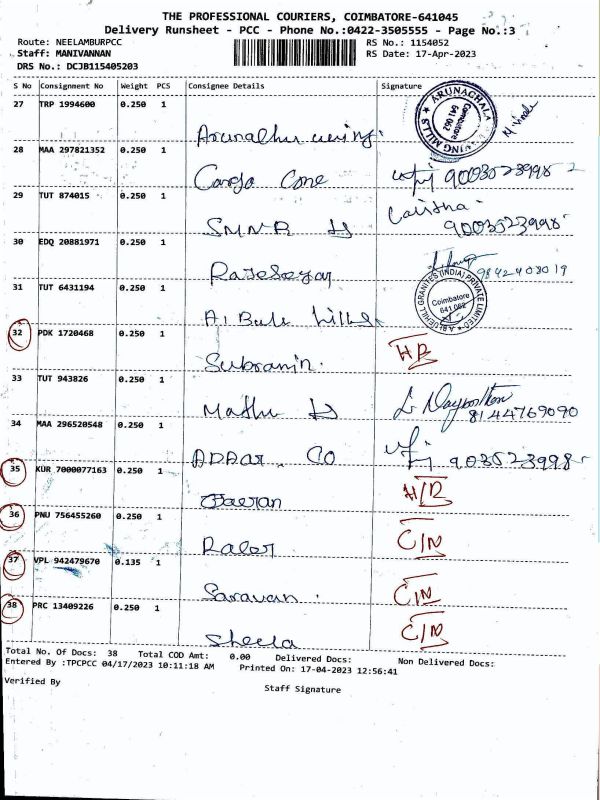 THE PROFESSIONAL COURIERS, COIMBATORE-641045
Delivery Runsheet - PCC - Phone No.:0422-3505555 - Page No.:3
Route: NEELAMBURPCC RS No.: 1154052
Staff: MANIVANNAN RS Date: 17-Apr-2023
DRS No.: DCJB115405203
S No Consignment No Weight PCS Consignee Details Signature
27 TRP 1994600 0.250 1
ARUNACHALA
Coimbatore
641 062
28 MAA 297821352 0.250 1
Cargo Cone 9003523998
29 TUT 874015 0.250 1
SMNR 9003523998
30 EDQ 20881971 0.250 1
9842408019
31 TUT 6431194 0.250 1
BLUEHILL GRANITES (INDIA) PRIVATE LIMITED
Coimbatore
641 062
32 PDK 1720468 0.250 1
33 TUT 943826 0.250 1
8144769090
34 MAA 296520548 0.250 1
ADAar. CO 903523998
35 KUR 7000077163 0.250 1
36 PNU 756455260 0.250 1
C/N
37 VPL 942479670 0.135 1
Saravan. C/N
38 PRC 13409226 0.250 1
Sheela C/N
Total No. Of Docs: 38 Total COD Amt: 0.00 Delivered Docs: Non Delivered Docs:
Entered By :TPCPCC 04/17/2023 10:11:18 AM Printed On: 17-04-2023 12:56:41
Verified By
Staff Signature